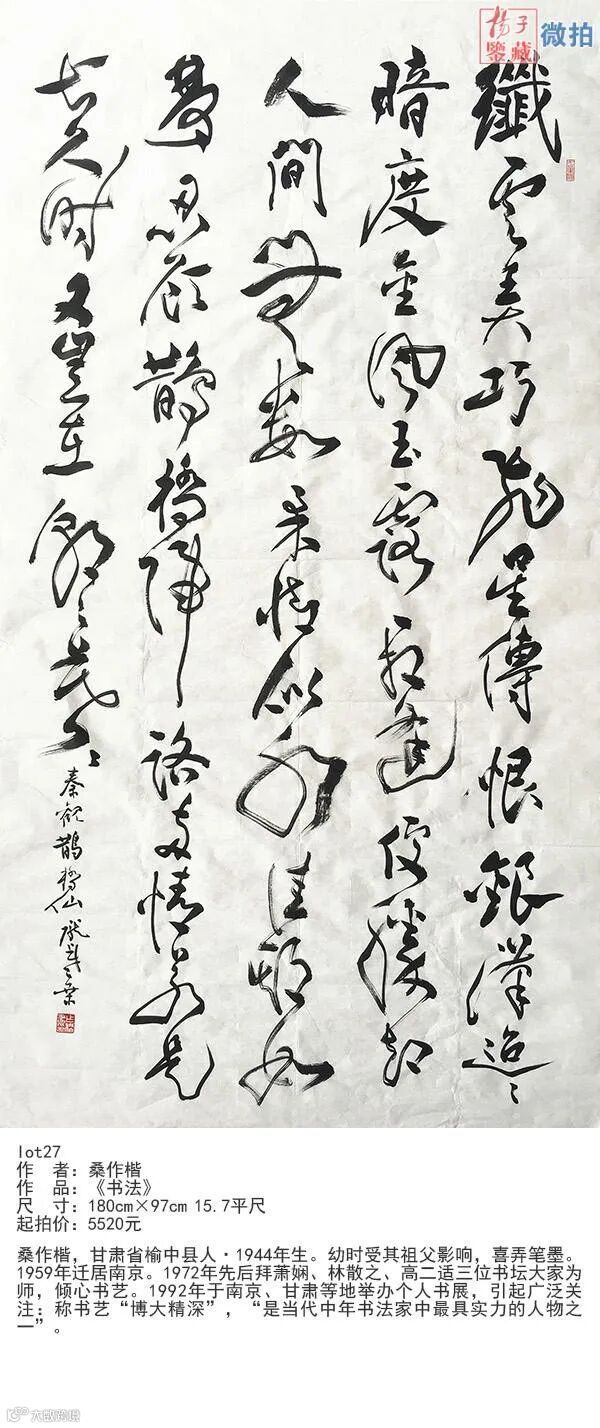 楊子
鑒藏 微拍
纖雲弄巧飛星傳恨銀漢迢〻
暗度金風玉露一相逢便勝却
人間無數柔情似水佳期如
夢忍顧鵲橋歸路兩情若是
長久時又豈在朝〻暮〻
秦觀鵲橋仙
lot27
作 者：桑作楷
作 品：《书法》
尺 寸：180cm×97cm 15.7平尺
起拍价：5520元
桑作楷，甘肃省榆中县人·1944年生。幼时受其祖父影响，喜弄笔墨。
1959年迁居南京。1972年先后拜萧娴、林散之、高二适三位书坛大家为
师，倾心书艺。1992年于南京、甘肃等地举办个人书展，引起广泛关
注：称书艺“博大精深”，“是当代中年书法家中最具实力的人物之
一”。
大数跨境